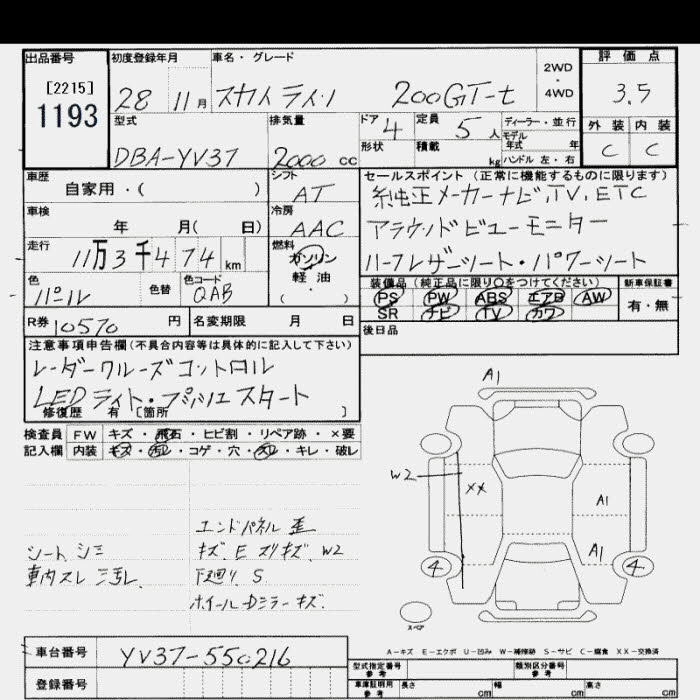 出品番号
[2215]
1193
初度登録年月
28 11月
車名・グレード
スカイライン 200GT-t
2WD
・
4WD
評価点
3.5
外装 内装
C C
型式
DBA-YV37
排気量
2000 cc
ドア
4
形状
定員
5人
積載
kg
ディーラー・並行
モデル
年式 年
ハンドル 左・右
車歴
自家用・( )
シフト
AT
車検
年 月( 日)
冷房
AAC
走行
11万3千474 km
燃料
ガソリン
軽油
( ・ )
色
パール
色替
色コード
QAB
R券 10570 円
名変期限 月 日
セールスポイント (正常に機能するものに限ります)
純正メーカーナビ,TV,ETC
アラウンドビューモニター
ハーフレザーシート・パワーシート
装備品(純正品に限り○をつけてください)
PS PW ABS エアB AW
SR ナビ TV カワ
新車保証書
有・無
後日品
注意事項申告欄(不具合内容等は具体的に記入して下さい)
レーダークルーズコントロル
LEDライト・プッシュスタート
修復歴 有 [箇所 ]
検査員 FW キズ・飛石・ヒビ割・リペア跡・×要
記入欄 内装 キズ・汚レ・コゲ・穴・スレ・キレ・破レ
エンドパネル 歪
キズ、E スリキズ、W2
下廻り、S
ホイールDミラーキズ、
シート シミ
車内スレ 汚レ
A1
W2
XX
A1
A1
4
4
スペア
A-キズ E-エクボ U-凹み W-補修跡 S-サビ C-腐食 XX-交換済
車台番号 YV37-550216
登録番号
型式指定番号
参考
類別区分番号
参考
車庫証明用
参考
長さ cm 幅 cm 高さ cm